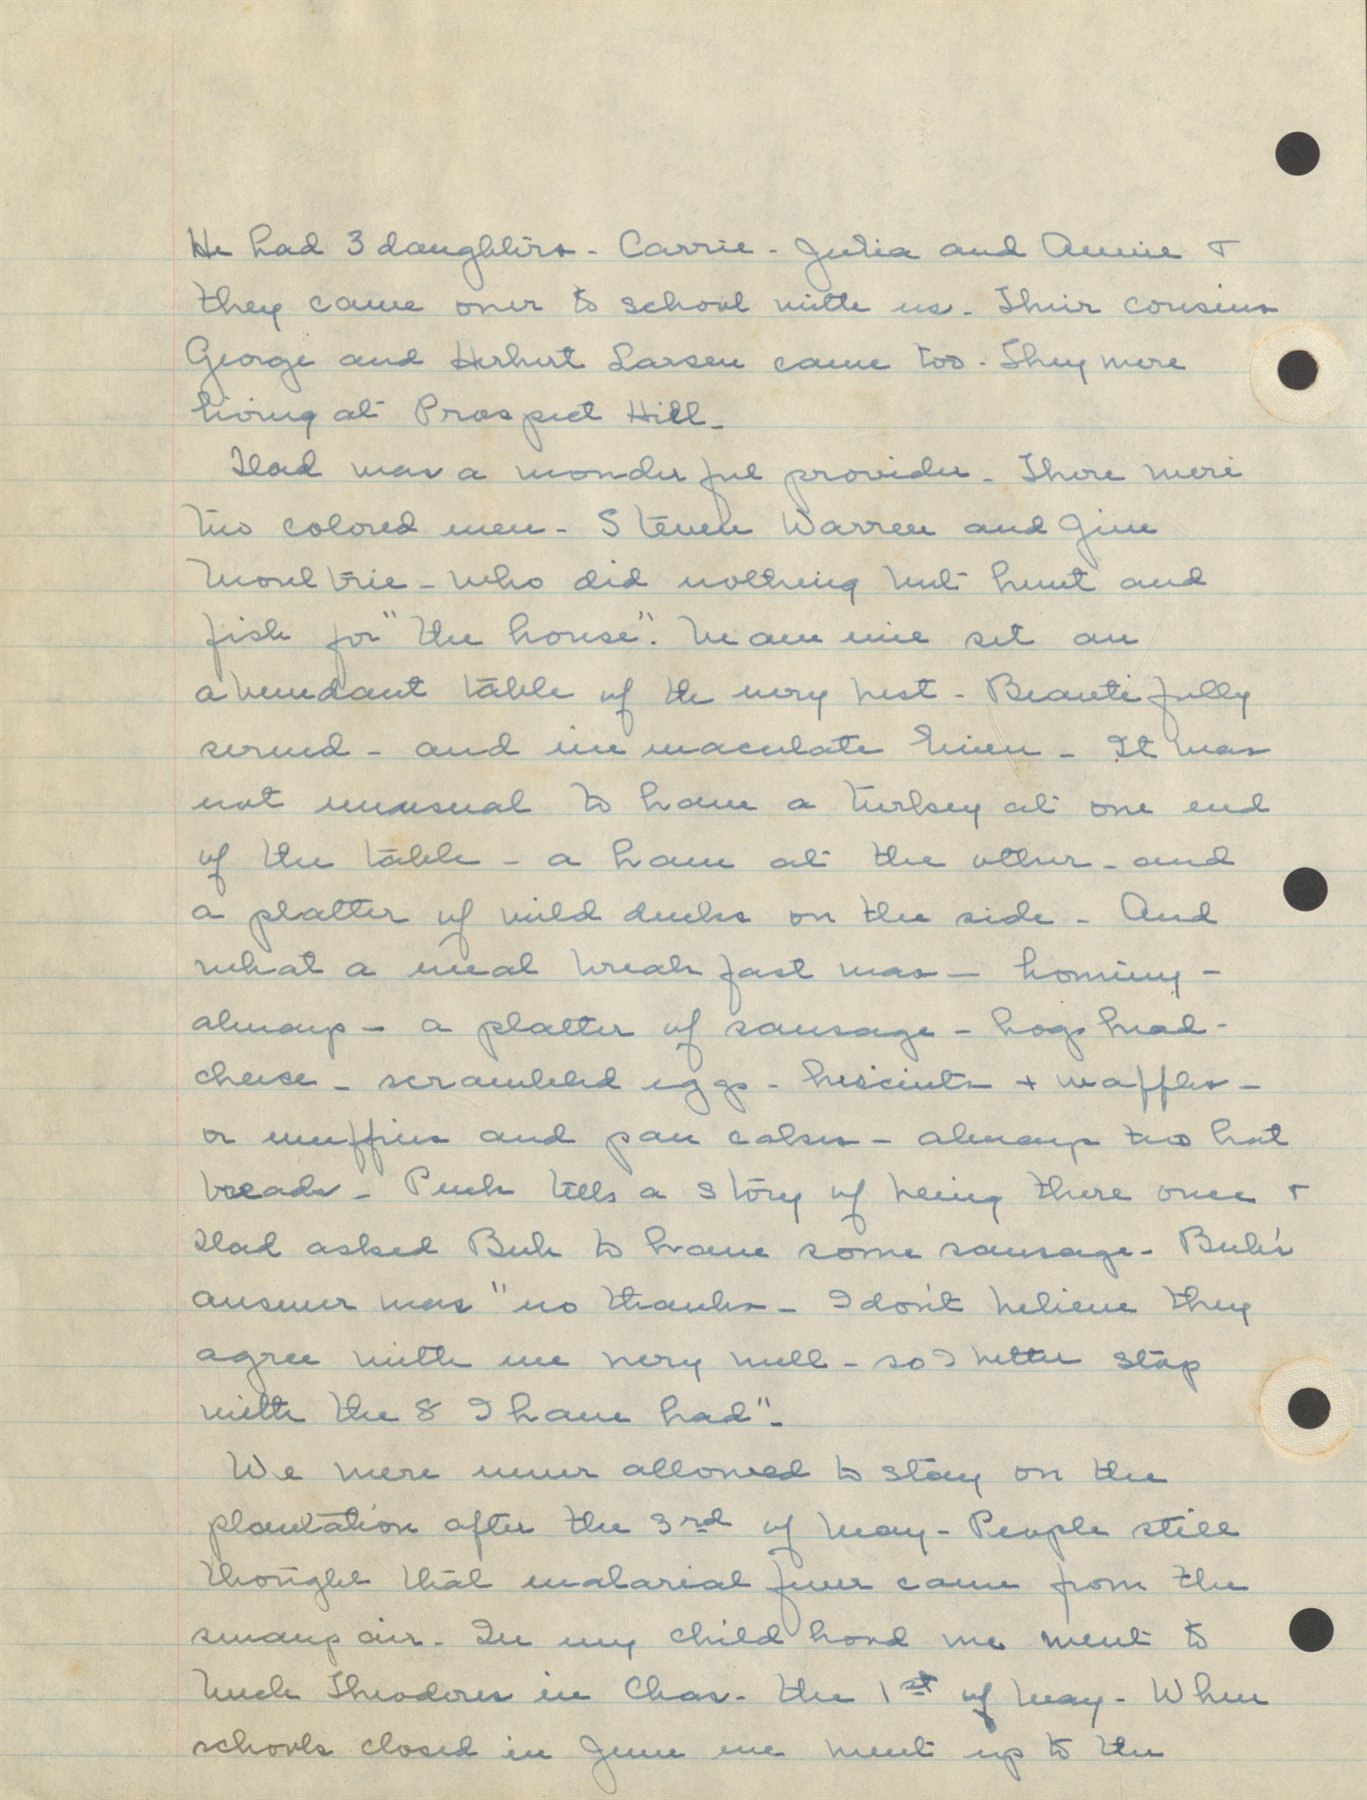 He had 3 daughters - Carrie - Julia and Annie &
they came over to school with us - Their cousins
George and Herbert Larsen came too - They were
living at Prospect Hill -
Dad was a wonderful provider - There were
two colored men - Steven Warren and Jim
Moultrie - who did nothing but hunt and
fish for "the house". Mammie set an
abundant table of the very best - Beautifully
served - and immaculate linen - It was
not unusual to have a turkey at one end
of the table - a ham at the other - and
a platter of wild ducks on the side - And
what a meal breakfast was - hominy -
always - a platter of sausage - hogs head -
cheese - scrambled eggs - biscuits + waffles -
or muffins and pan cakes - always two hot
breads - Puck tells a story of being there once &
Dad asked Bub to have some sausage - Bub's
answer was "no thanks - I don't believe they
agree with me very well - so I better stop
with the 8 I have had" -
We were never allowed to stay on the
plantation after the 3rd of May - People still
thought that malarial fever came from the
swamp air - In my childhood we went to
Uncle Theodores in Chas - the 1st of May - When
schools closed in June we went up to the